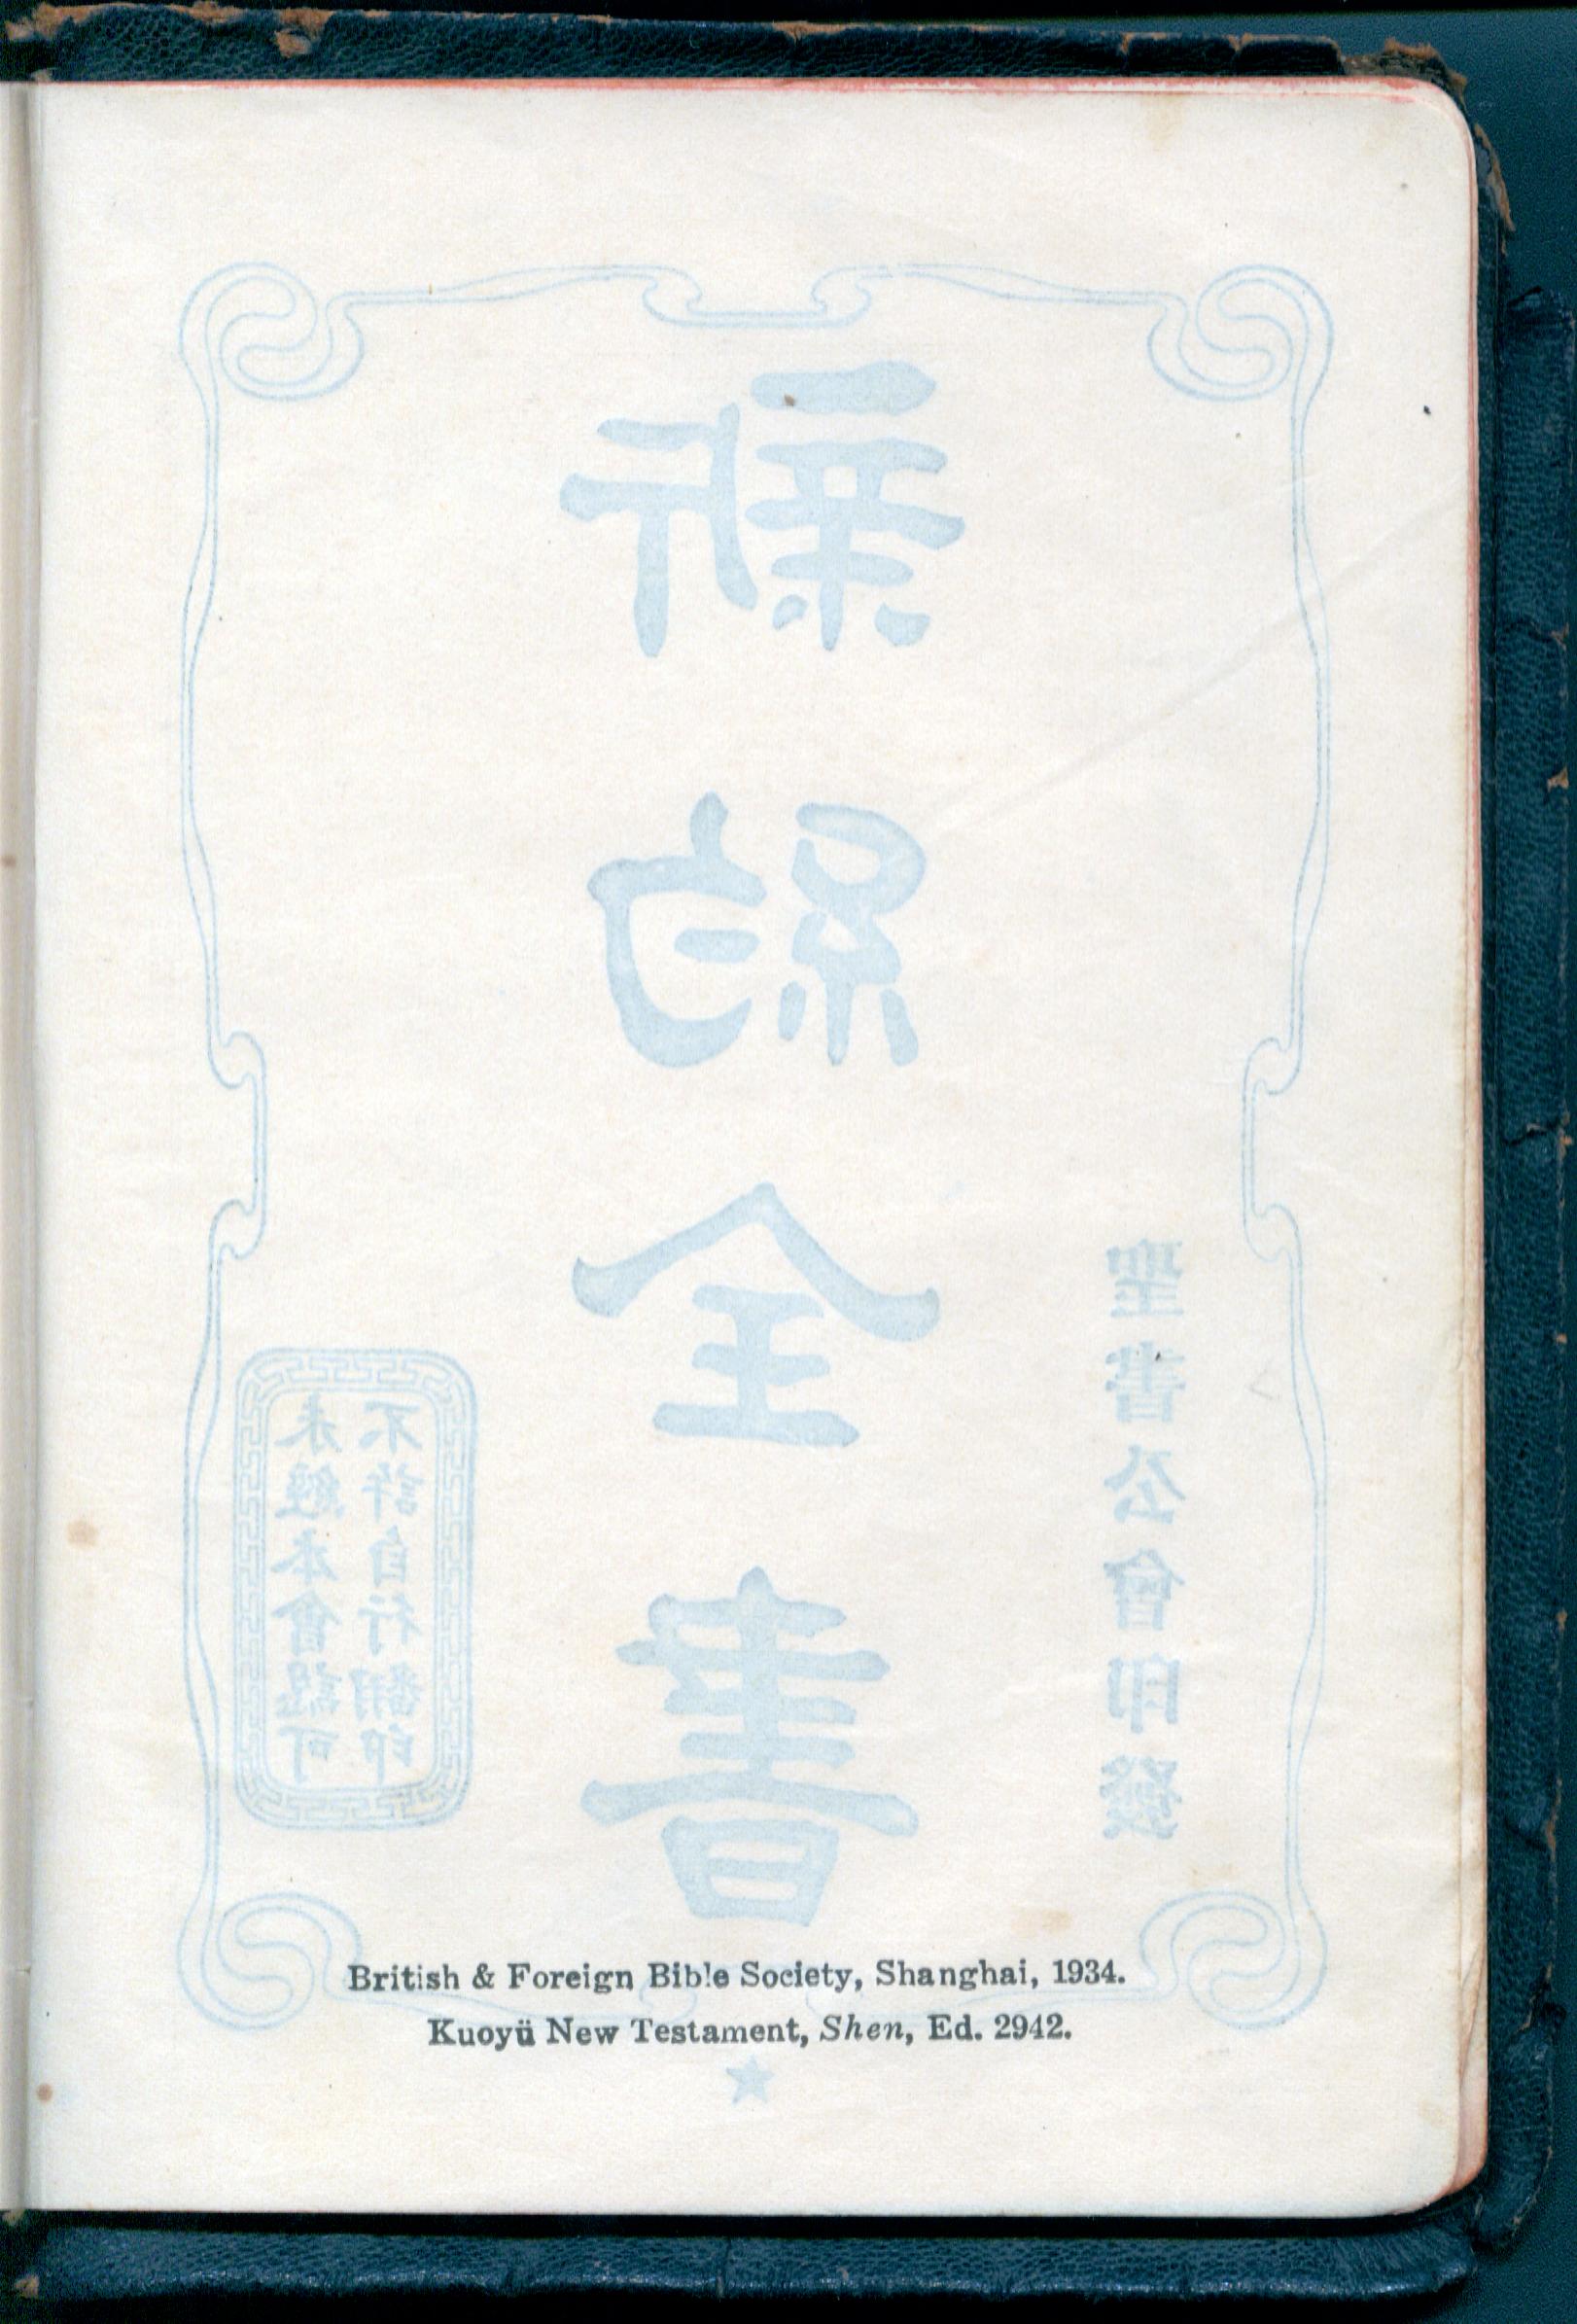 新約全書
聖書公會印發
未經本會認可
不許自行翻印
British & Foreign Bible Society, Shanghai, 1934.
Kuoyü New Testament, Shen, Ed. 2942.